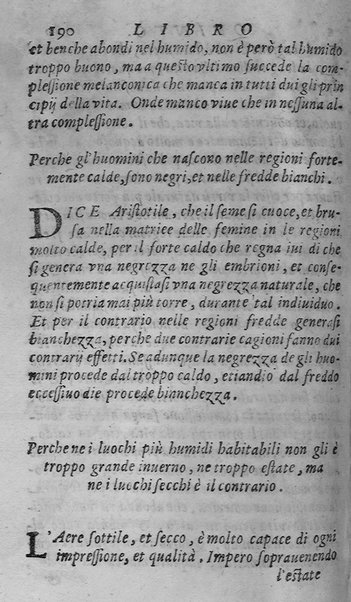 190 LIBRO
et benche abondi nel humido, non è però tal humido
troppo buono, ma a questo vltimo succede la com-
plessione melanconica che manca in tutti dui gli prin
cipij della vita. Onde manco viue che in nessuna al-
tra complessione.
Perche gl'huomini che nascono nelle regioni forte-
mente calde, sono negri, et nelle fredde bianchi.
DICE Aristotile, che il seme si cuoce, et bru-
sa nella matrice delle femine in le regioni
molto calde, per il forte caldo che regna iui di che
si genera vna negrezza ne gli embrioni, et conse-
quentemente acquistasi vna negrezza naturale, che
non si potria mai più torre, durante tal indiuiduo.
Et per il contrario nelle regioni fredde generasi
bianchezza, perche due contrarie cagioni fanno dui
contrarij effetti. Se adunque la negrezza de gli huo-
mini procede dal troppo caldo, etiandio dal freddo
eccessiuo die procede bianchezza.
Perche ne i luochi più humidi habitabili non gli è
troppo grande inuerno, ne troppo estate, ma
ne i luochi secchi è il contrario.
L'Aere sottile, et secco, è molto capace di ogni
impressione, et qualità. Impero soprauenendo
l'estate